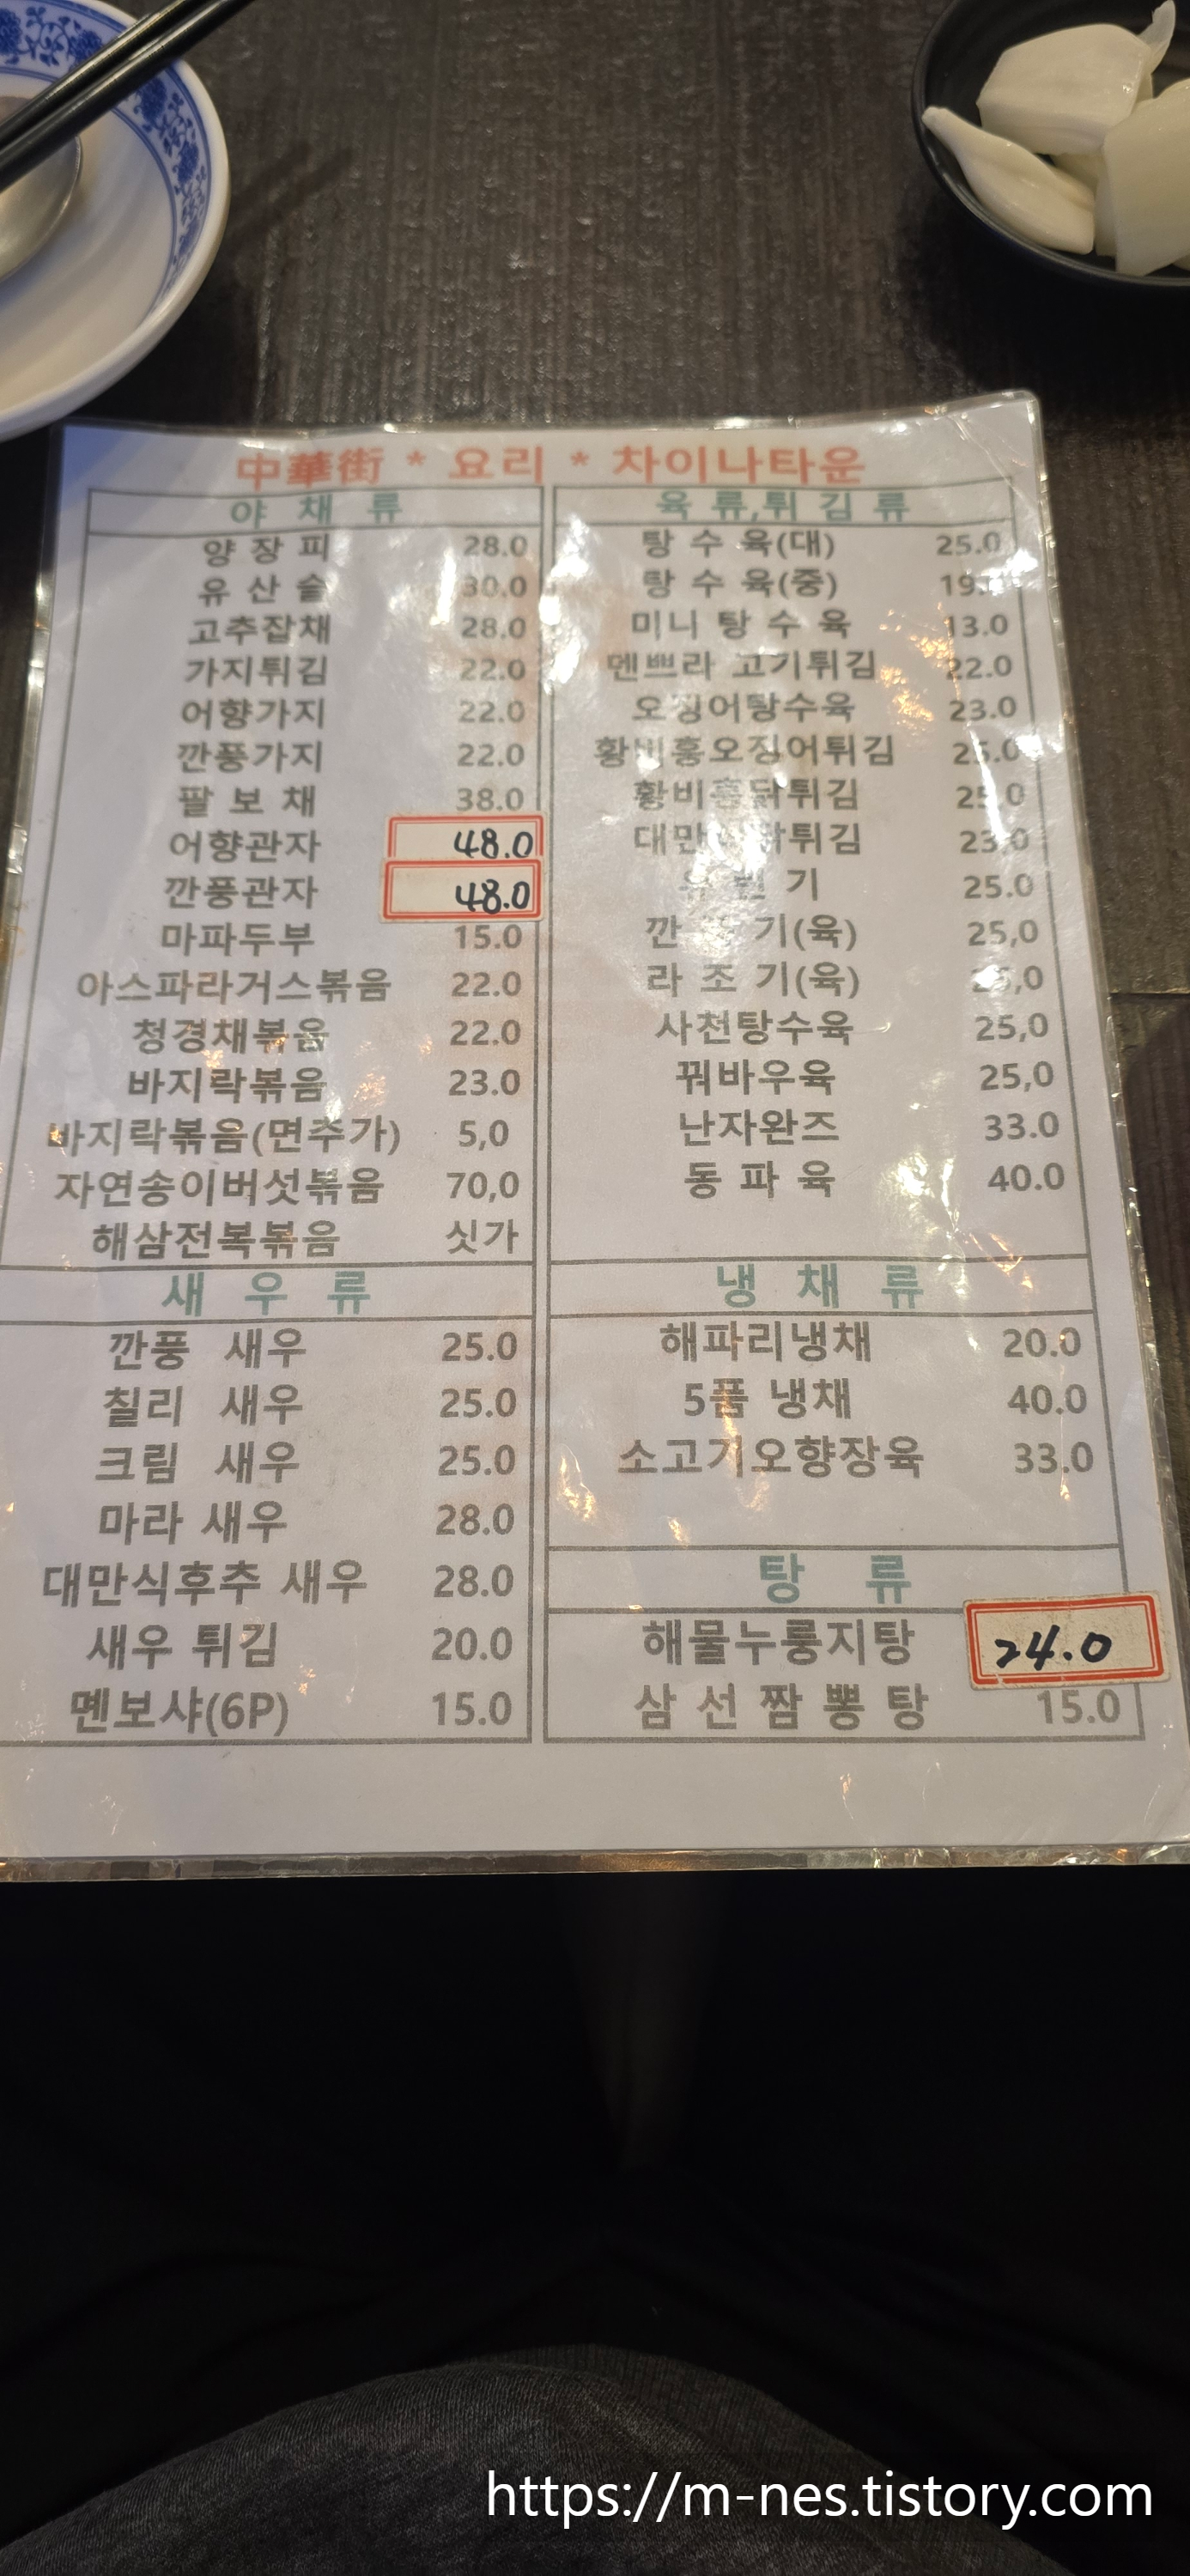 中華街 * 요리 * 차이나타운
야 채 류
양 장 피 28.0
유 산 슬 30.0
고추잡채 28.0
가지튀김 22.0
어향가지 22.0
깐풍가지 22.0
팔 보 채 38.0
어향관자 48.0
깐풍관자 48.0
마파두부 15.0
아스파라거스볶음 22.0
청경채볶음 22.0
바지락볶음 23.0
바지락볶음(면추가) 5,0
자연송이버섯볶음 70,0
해삼전복볶음 싯가
새 우 류
깐풍 새우 25.0
칠리 새우 25.0
크림 새우 25.0
마라 새우 28.0
대만식후추 새우 28.0
새우 튀김 20.0
멘보샤(6P) 15.0
육 류,튀 김 류
탕 수 육(대) 25.0
탕 수 육(중)
미니 탕 수 육 13.0
덴쁘라 고기튀김 22.0
오징어탕수육 23.0
황비홍오징어튀김 25.0
황비홍닭튀김 25.0
23.0
기 25.0
기(육) 25,0
라 조 기(육)
사천탕수육 25,0
꿔바우육 25,0
난자완즈 33.0
동 파 육 40.0
냉 채 류
해파리냉채 20.0
5품 냉채 40.0
소고기오향장육 33.0
탕 류
해물누룽지탕 24.0
삼 선 짬 뽕 탕 15.0
https://m-nes.tistory.com